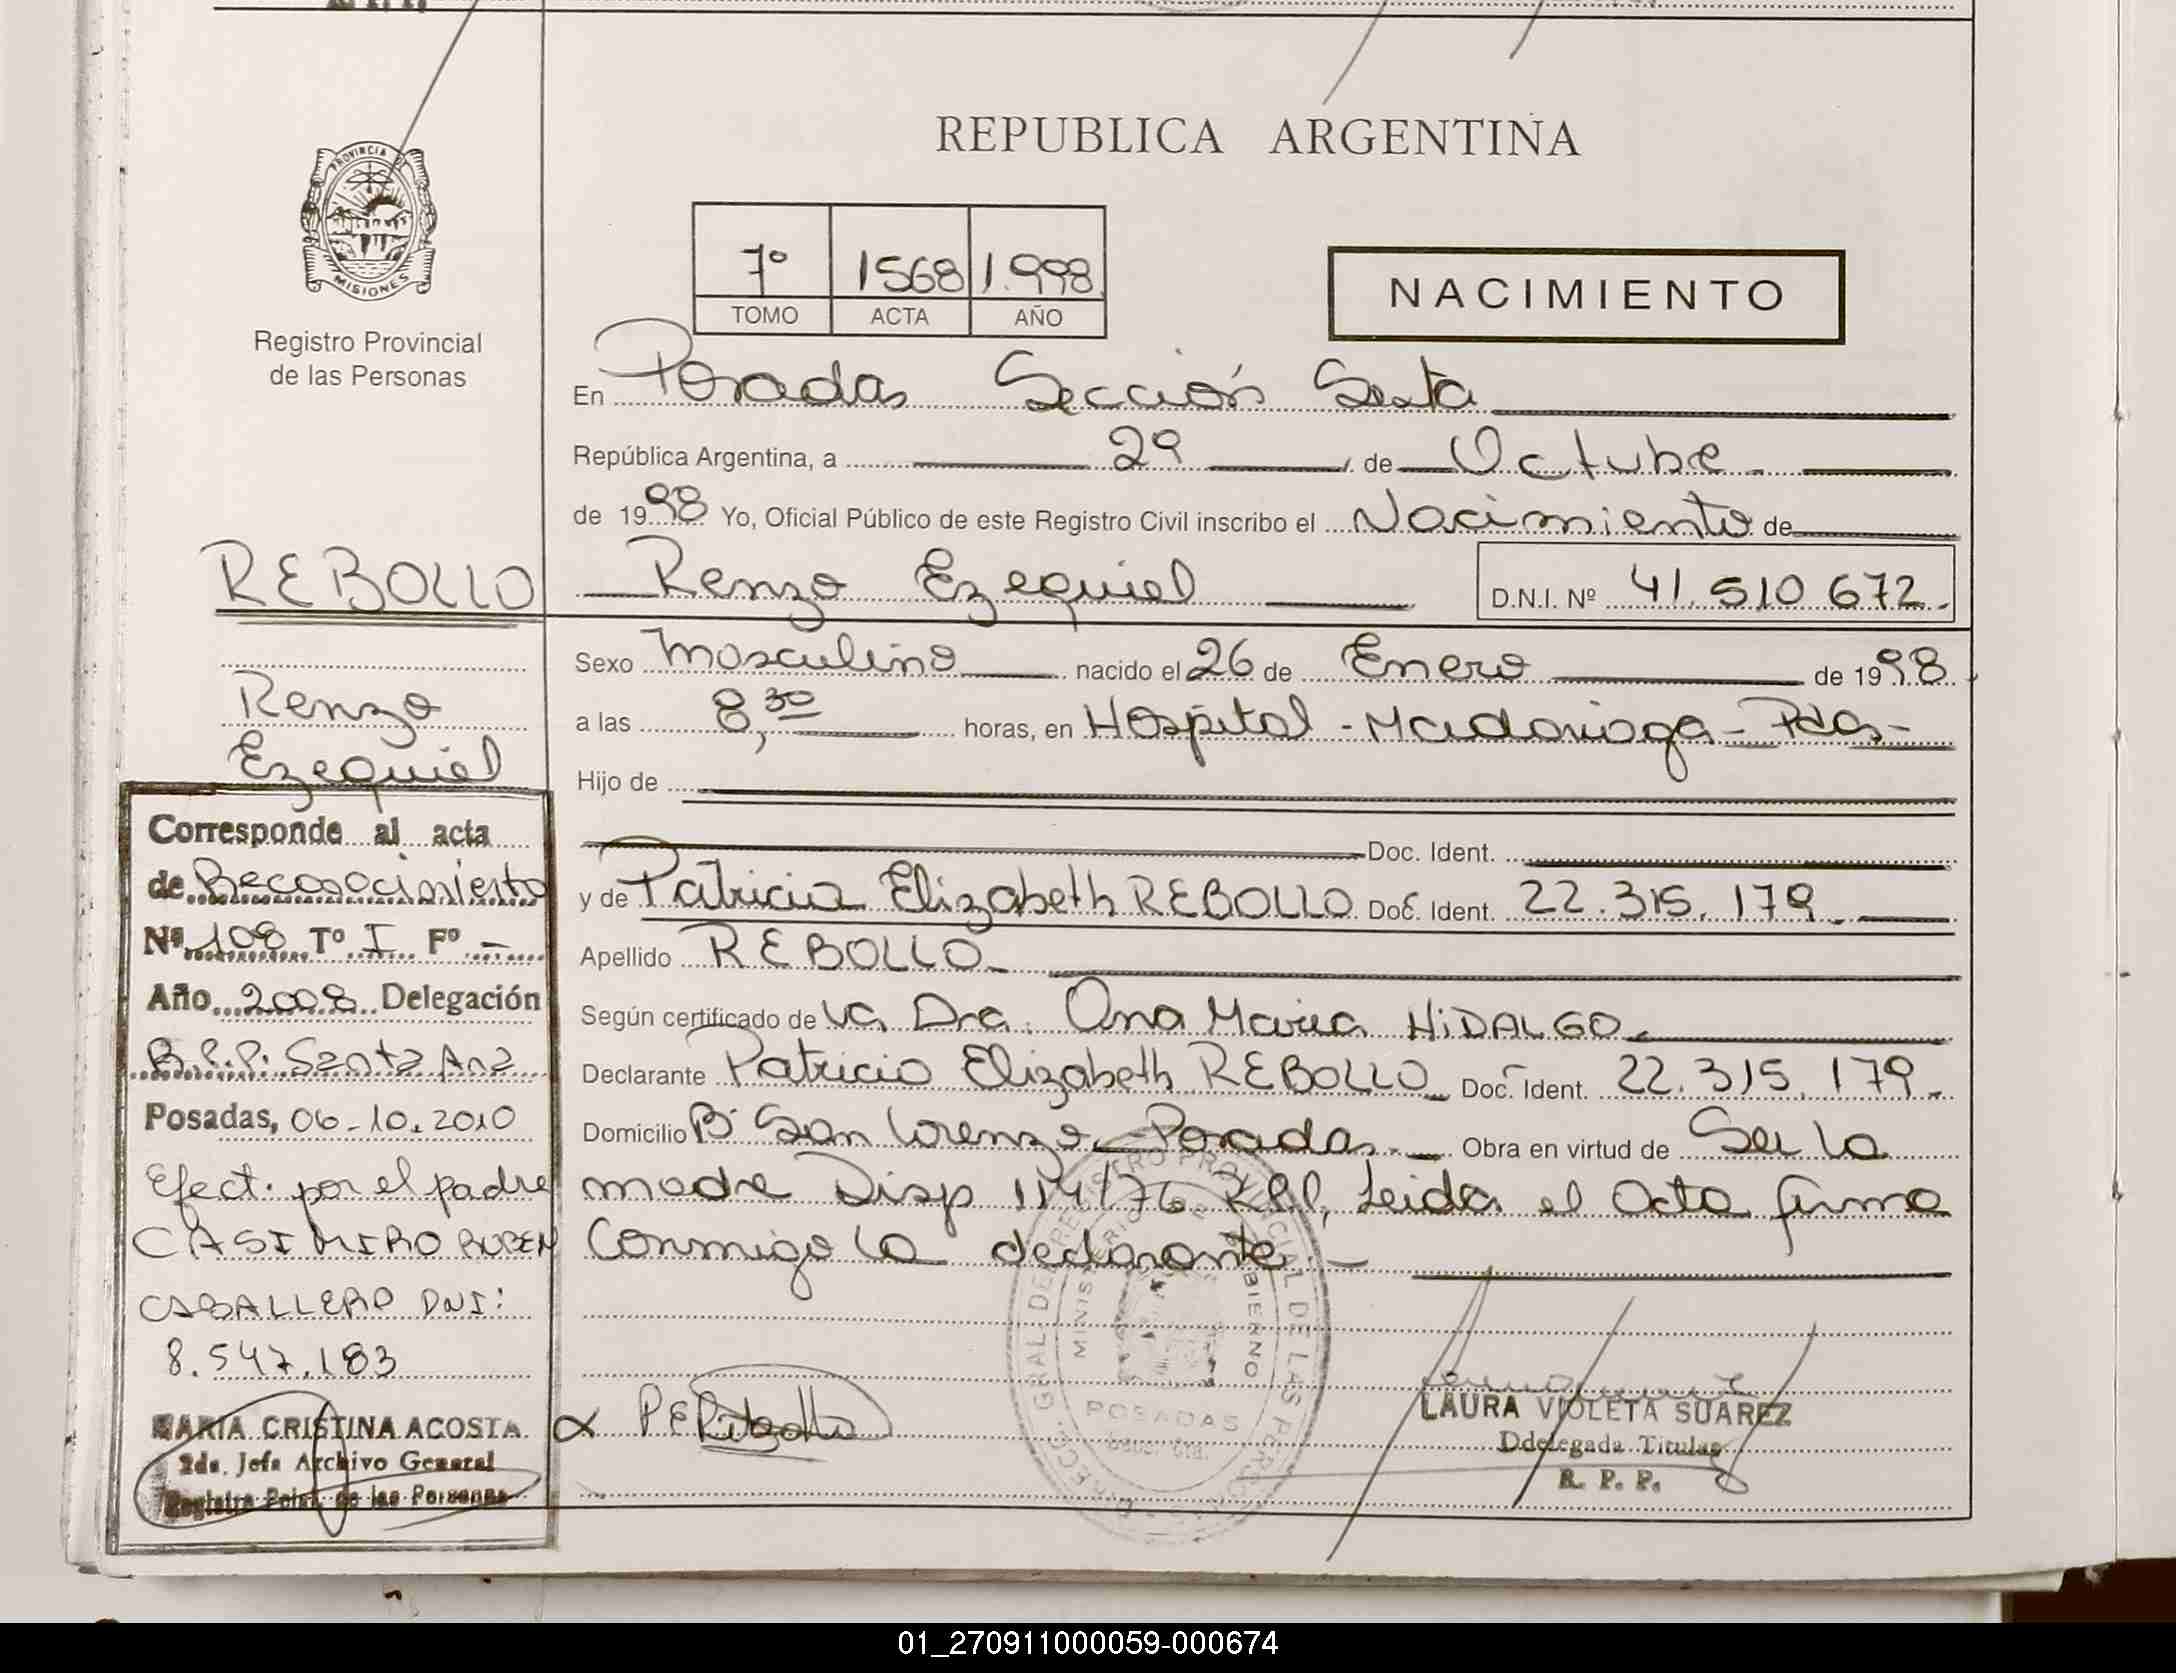 R. P. P.
REPUBLICA ARGENTINA
PROVINCIA DE
MISIONES
Registro Provincial
de las Personas
7º 1568 1.998.
TOMO ACTA AÑO
NACIMIENTO
En Posadas Sección Sexta
República Argentina, a 29 de Octubre
de 1998 Yo, Oficial Público de este Registro Civil inscribo el Nacimiento de
REBOLLO
Renzo Ezequiel D.N.I. Nº 41.510 672.
Sexo Masculino nacido el 26 de Enero de 1998.
Renzo
Ezequiel
a las 8,30 horas, en Hospital - Madariaga - Pdas -
Hijo de
Doc. Ident.
y de Patricia Elizabeth REBOLLO Doc. Ident. 22.315.179.
Apellido REBOLLO
Según certificado de la Dra. Ana Maria HiDALGO.
Declarante Patricia Elizabeth REBOLLO Doc. Ident. 22.315.179.
Domicilio Bº San Lorenzo - Posadas. Obra en virtud de Ser la
madre Disp 114/76 R.P.P, Leida el Acta firma
Conmigo la declarante -
Corresponde al acta
de Reconocimiento
Nº 108 Tº I Fº -
Año 2008 Delegación
R.P.P. Santa Ana
Posadas, 06-10.2010
Efect. por el padre
CASIMIRO RUBEN
CABALLERO DNI:
8.547.183
MARIA CRISTINA ACOSTA
2da. Jefa Archivo General
Registro Pcial. de las Personas
DIRECC. GRAL DE REGISTRO PROVINCIAL DE LAS PERSONAS
MINISTERIO DE GOBIERNO
POSADAS
LAURA VIOLETA SUAREZ
Ddelegada Titular
R. P. P.
01_270911000059-000674